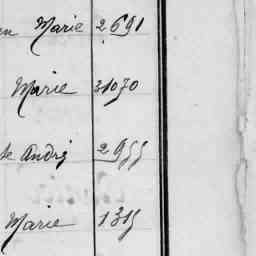 Marie 2691
Marie 31070
André 2955
Marie 1315